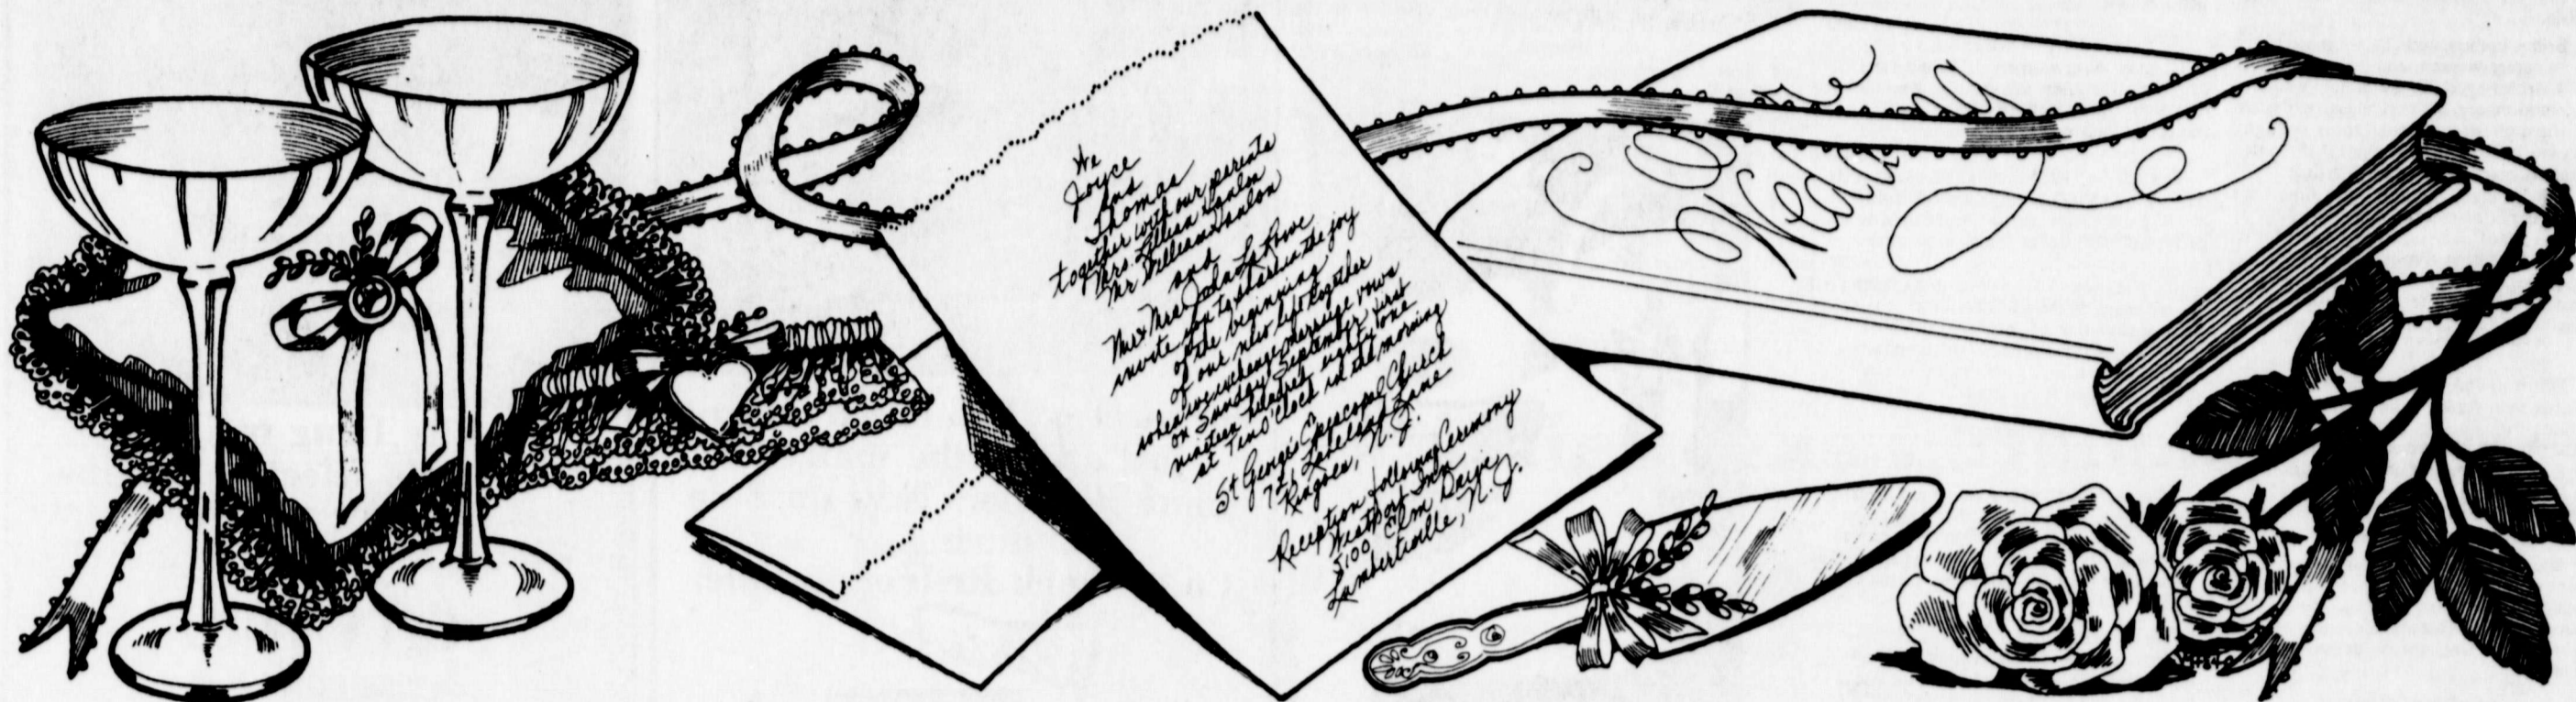 We
Joyce
And
Thomas
together with our parents
Mrs. Lillian Hanlon
Mr William Hanlon
and
Mr & Mrs John La Rowe
invite you to share in the joy
of the beginning
of our new life together
when we exchange marriage vows
on Sunday September first
nineteen hundred eighty one
at Ten O'Clock in the morning
St George's Episcopal Church
725 Lakeland Lane
Ringoes, N. J.
Reception following Ceremony
Inn
5100 Elm Drive
Lambertville, N. J.
Our
Wedding